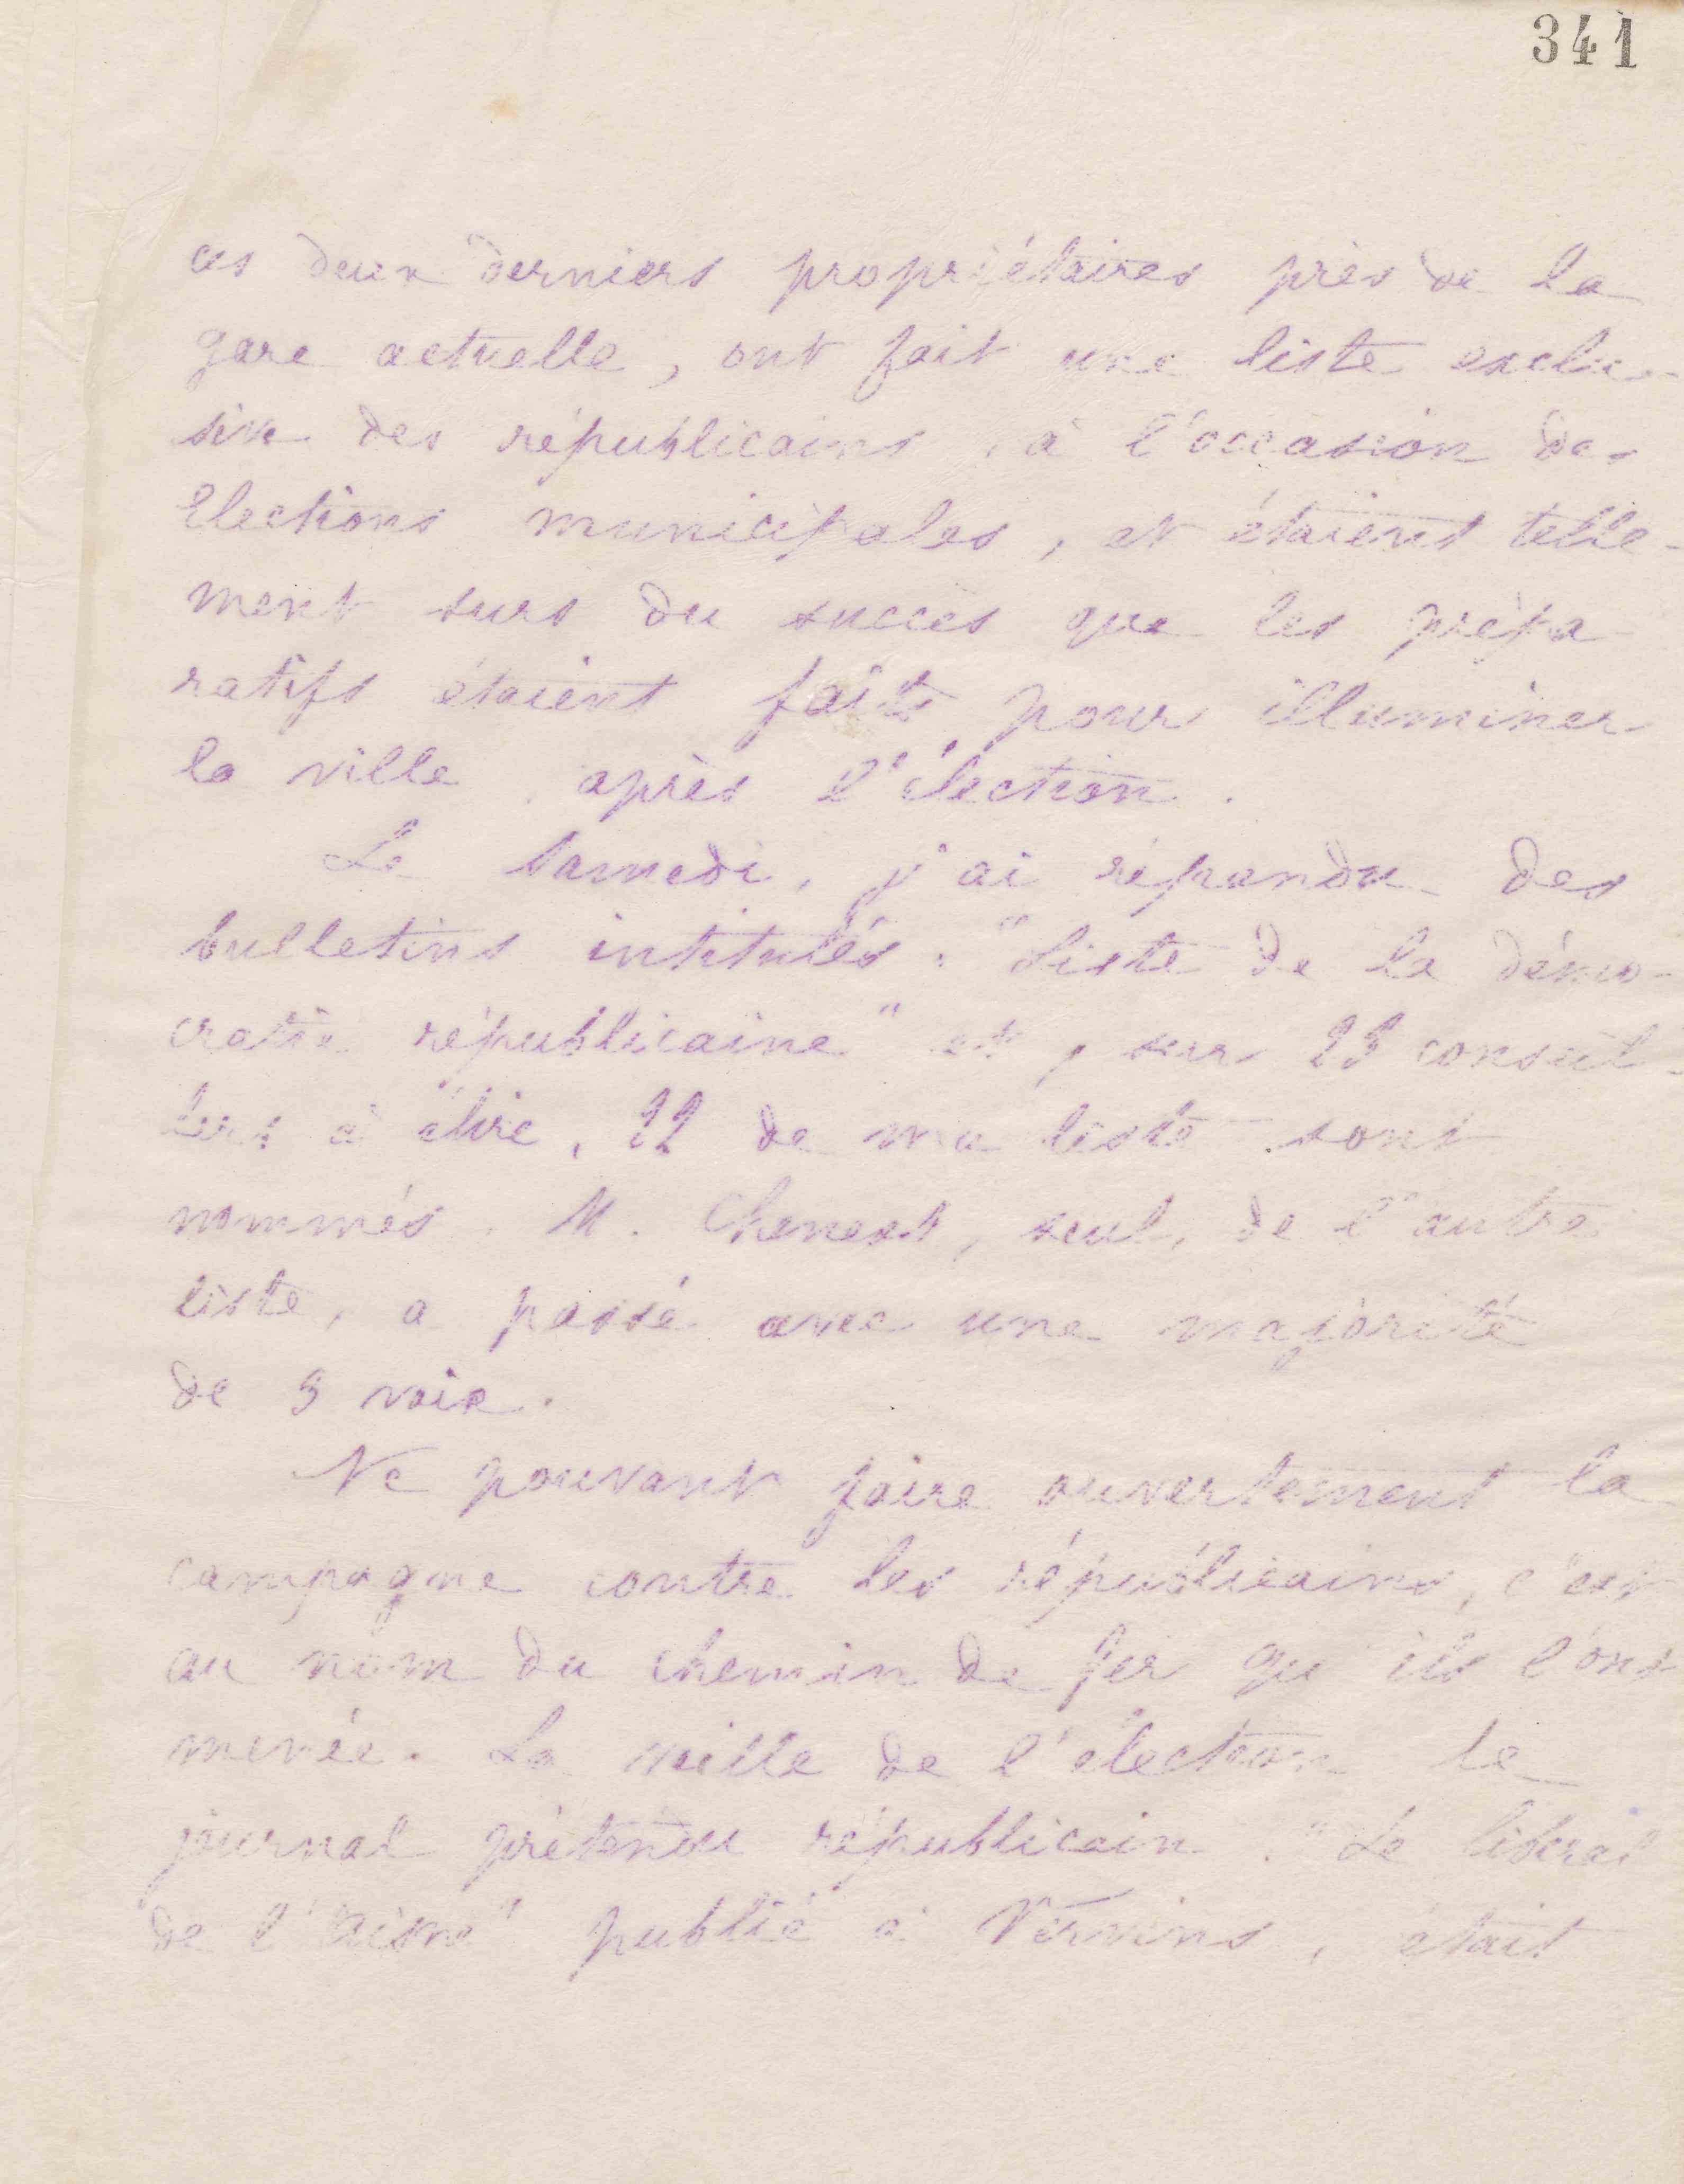 341
ces deux derniers propriétaires près de la
gare actuelle, ont fait une liste exclu-
sive des républicains, à l'occasion des
Elections municipales, et étaient telle-
ment surs du succès que les prépa-
ratifs étaient faits pour illuminer
la ville après l'élection.
Le samedi, j'ai répandu des
bulletins intitulés: "Liste de la démo-
cratie républicaine" et, sur 23 conseil-
lers à élire, 22 de ma liste sont
nommés. M. Chenest, seul, de l'autre
liste, a passé avec une majorité
de 3 voix.
Ne pouvant faire ouvertement la
campagne contre les républicains, c'est
au nom du chemin de fer qu'ils l'ont
menée. La veille de l'élection le
journal prétendu républicain. "Le libéral
de l'Aisne" publié à Vervins, était